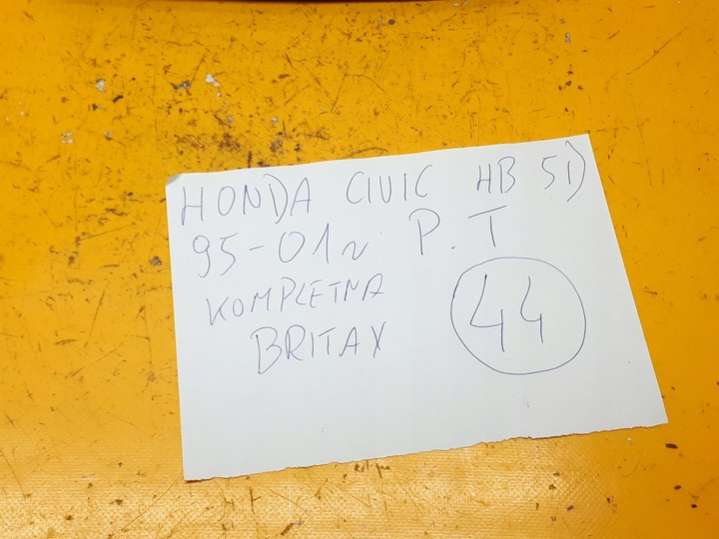 HONDA CIVIC HB 5D
95-01r P.T
KOMPLETNA
BRITAX
44